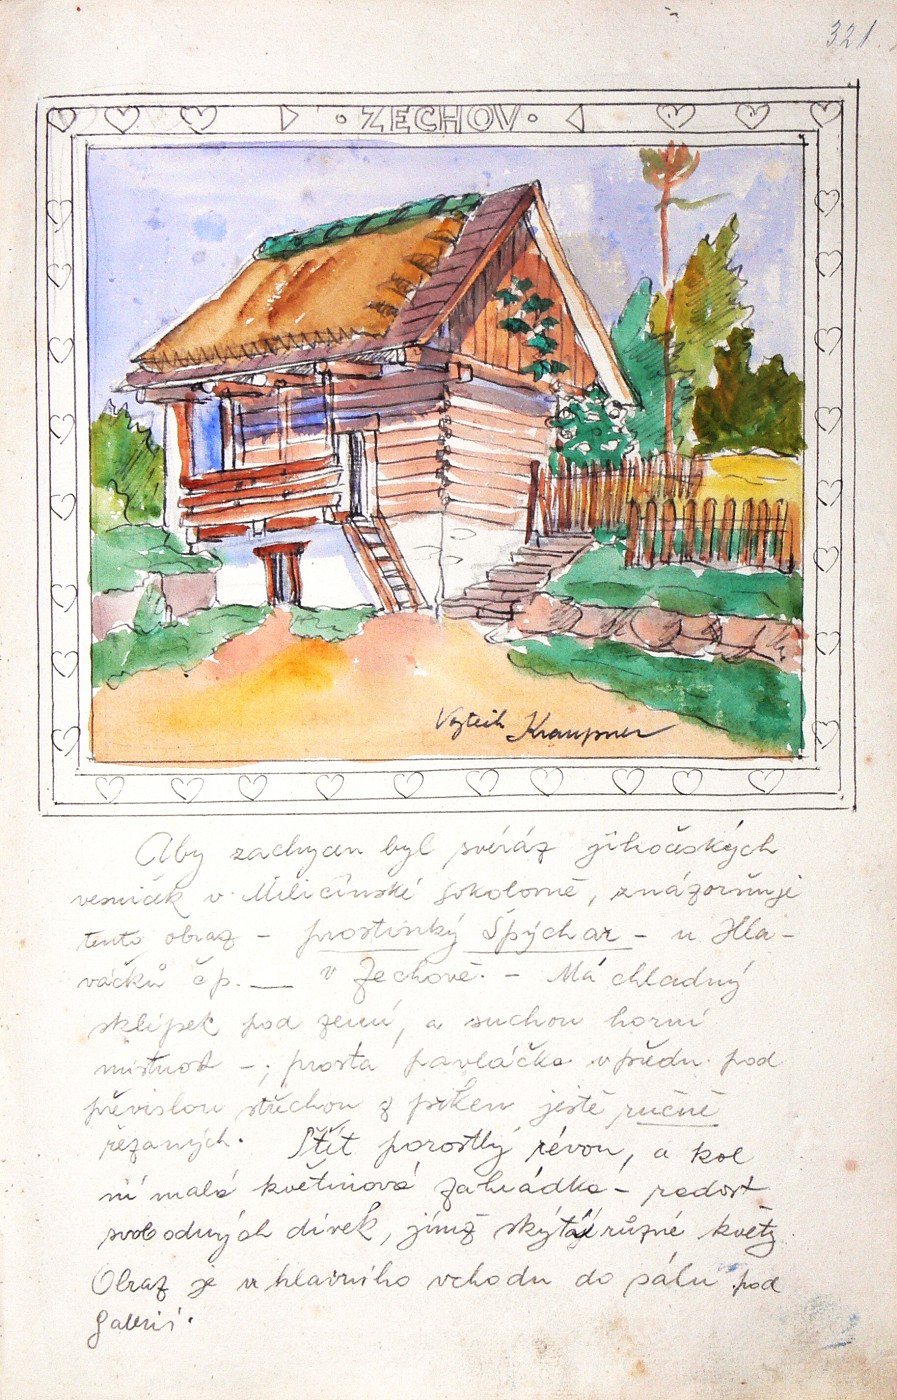 321.
ZECHOV
Vojtěch Kraupner
Aby zachycen byl svéráz jihočeských
vesniček v Miličínské sokolovně, znázorňuje
tento obraz – prostinký Špýchar – u Hla-
váčků čp. __ v Zechově. – Má chladný
sklípek pod zemí, a suchou horní
místnost –; prostá pavláčka vpředu pod
převislou střechou z prken ještě ručně
řezaných. Štít porostlý révou, a kol
ní malá květinová zahrádka – radost
svobodných dívek, jímž skýtá různé květy.
Obraz je u hlavního vchodu do sálu pod
galerií.